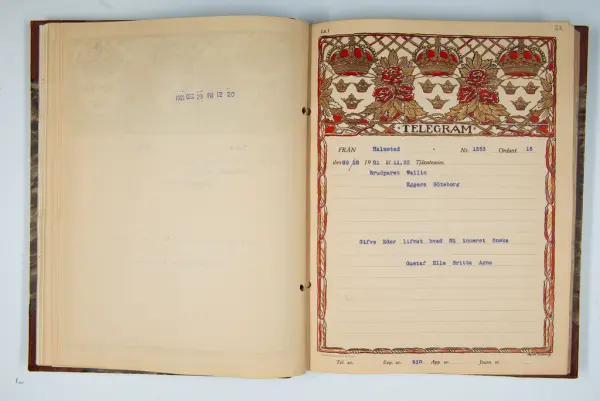 1921 DEC 29 PM 12 20
Lx 1
TELEGRAM
FRÅN Halmstad Nr. 1253 Ordant. 15
den 19 21 kl 11,55 Tjänsteanm.
Brudparet Wallin
Eggers Göteborg
Gifve Eder lifvet hvad Ni innerst önska
Gustaf Elle Britta Agne
Tel. nr. Exp. nr. 610 App nr. Journ. nr.